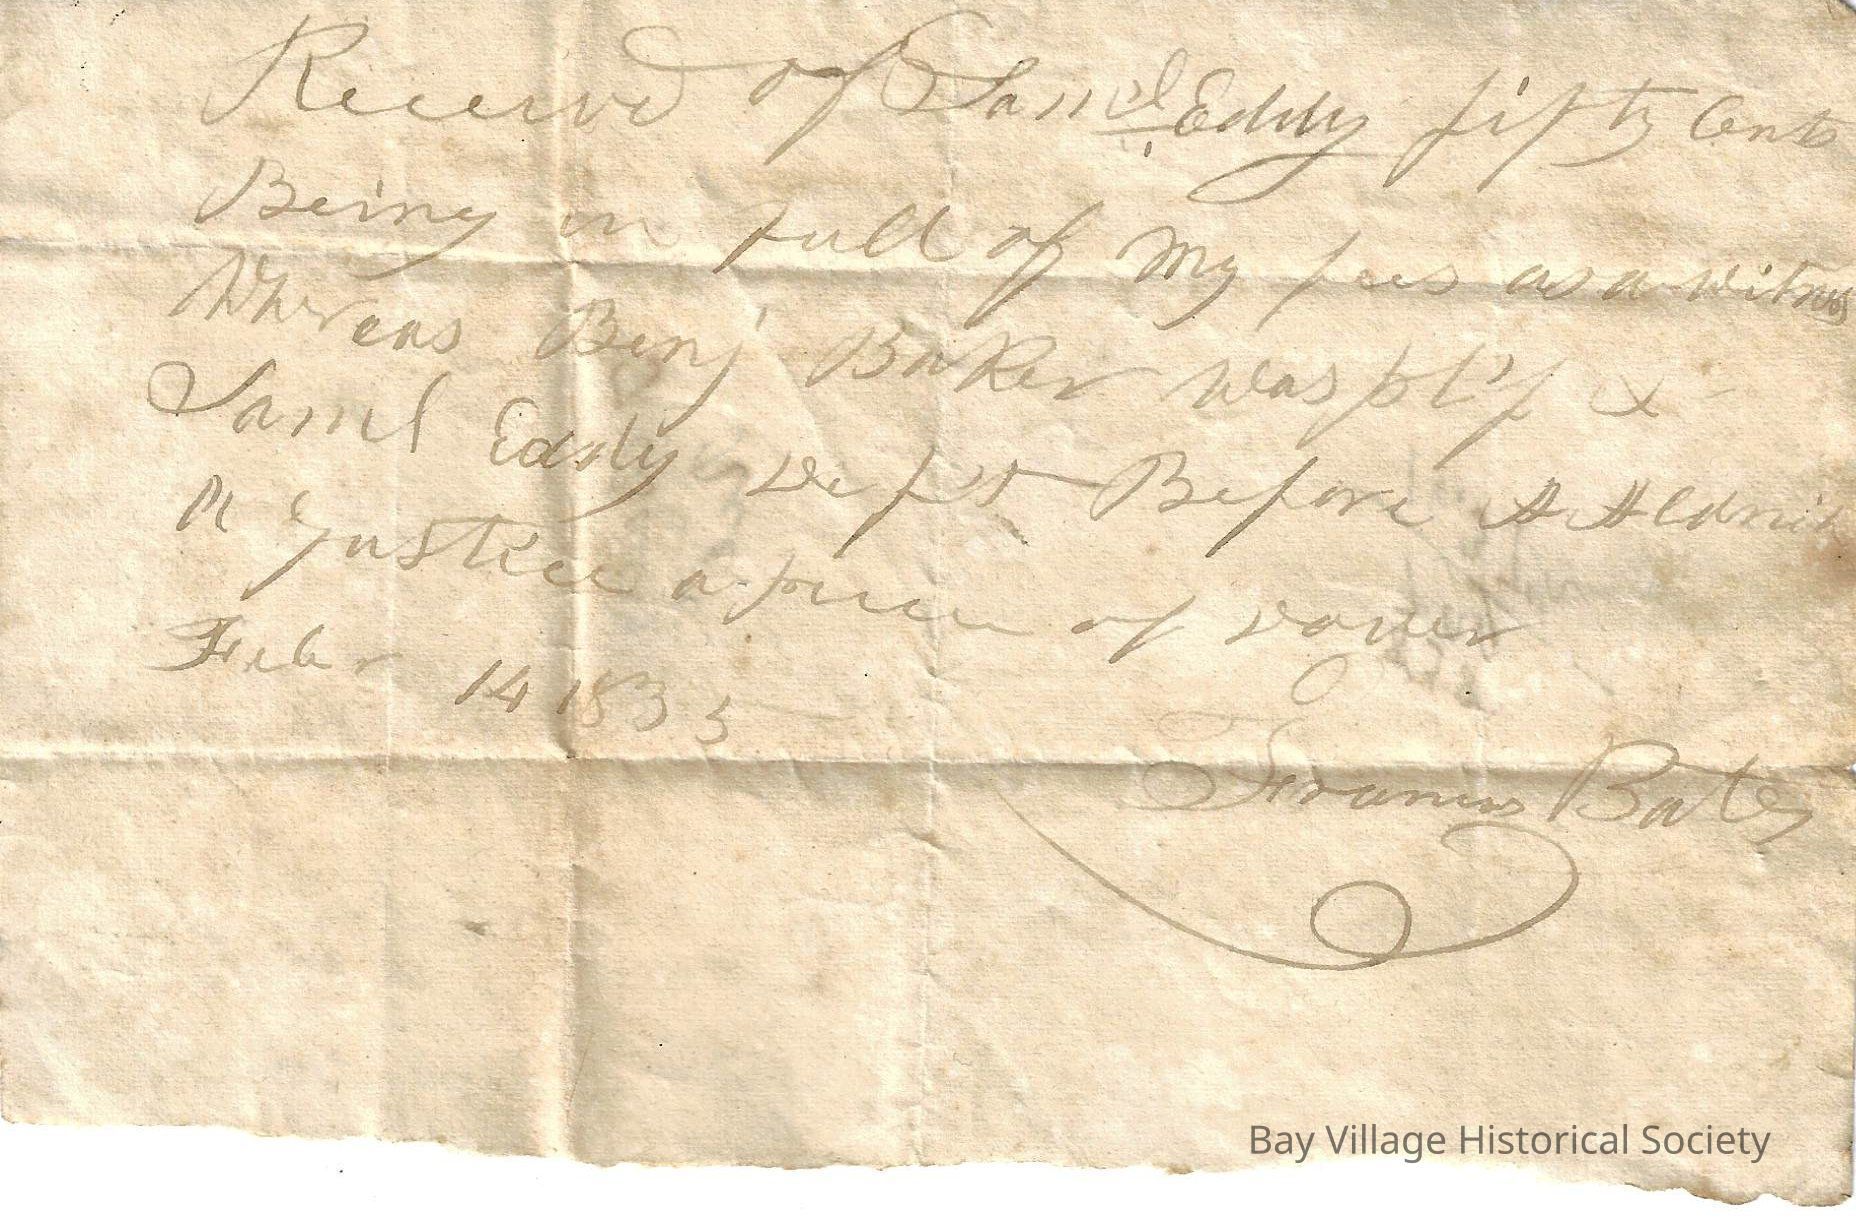 Received of Saml Eddy fifty Cents
Being in full of My fees as a witness
Whereas Benj Baker was pl'f &
Saml Eddy Deft Before A Aldrich
A Justice a peace of Dover
Febr 14 1835
Bates
Bay Village Historical Society